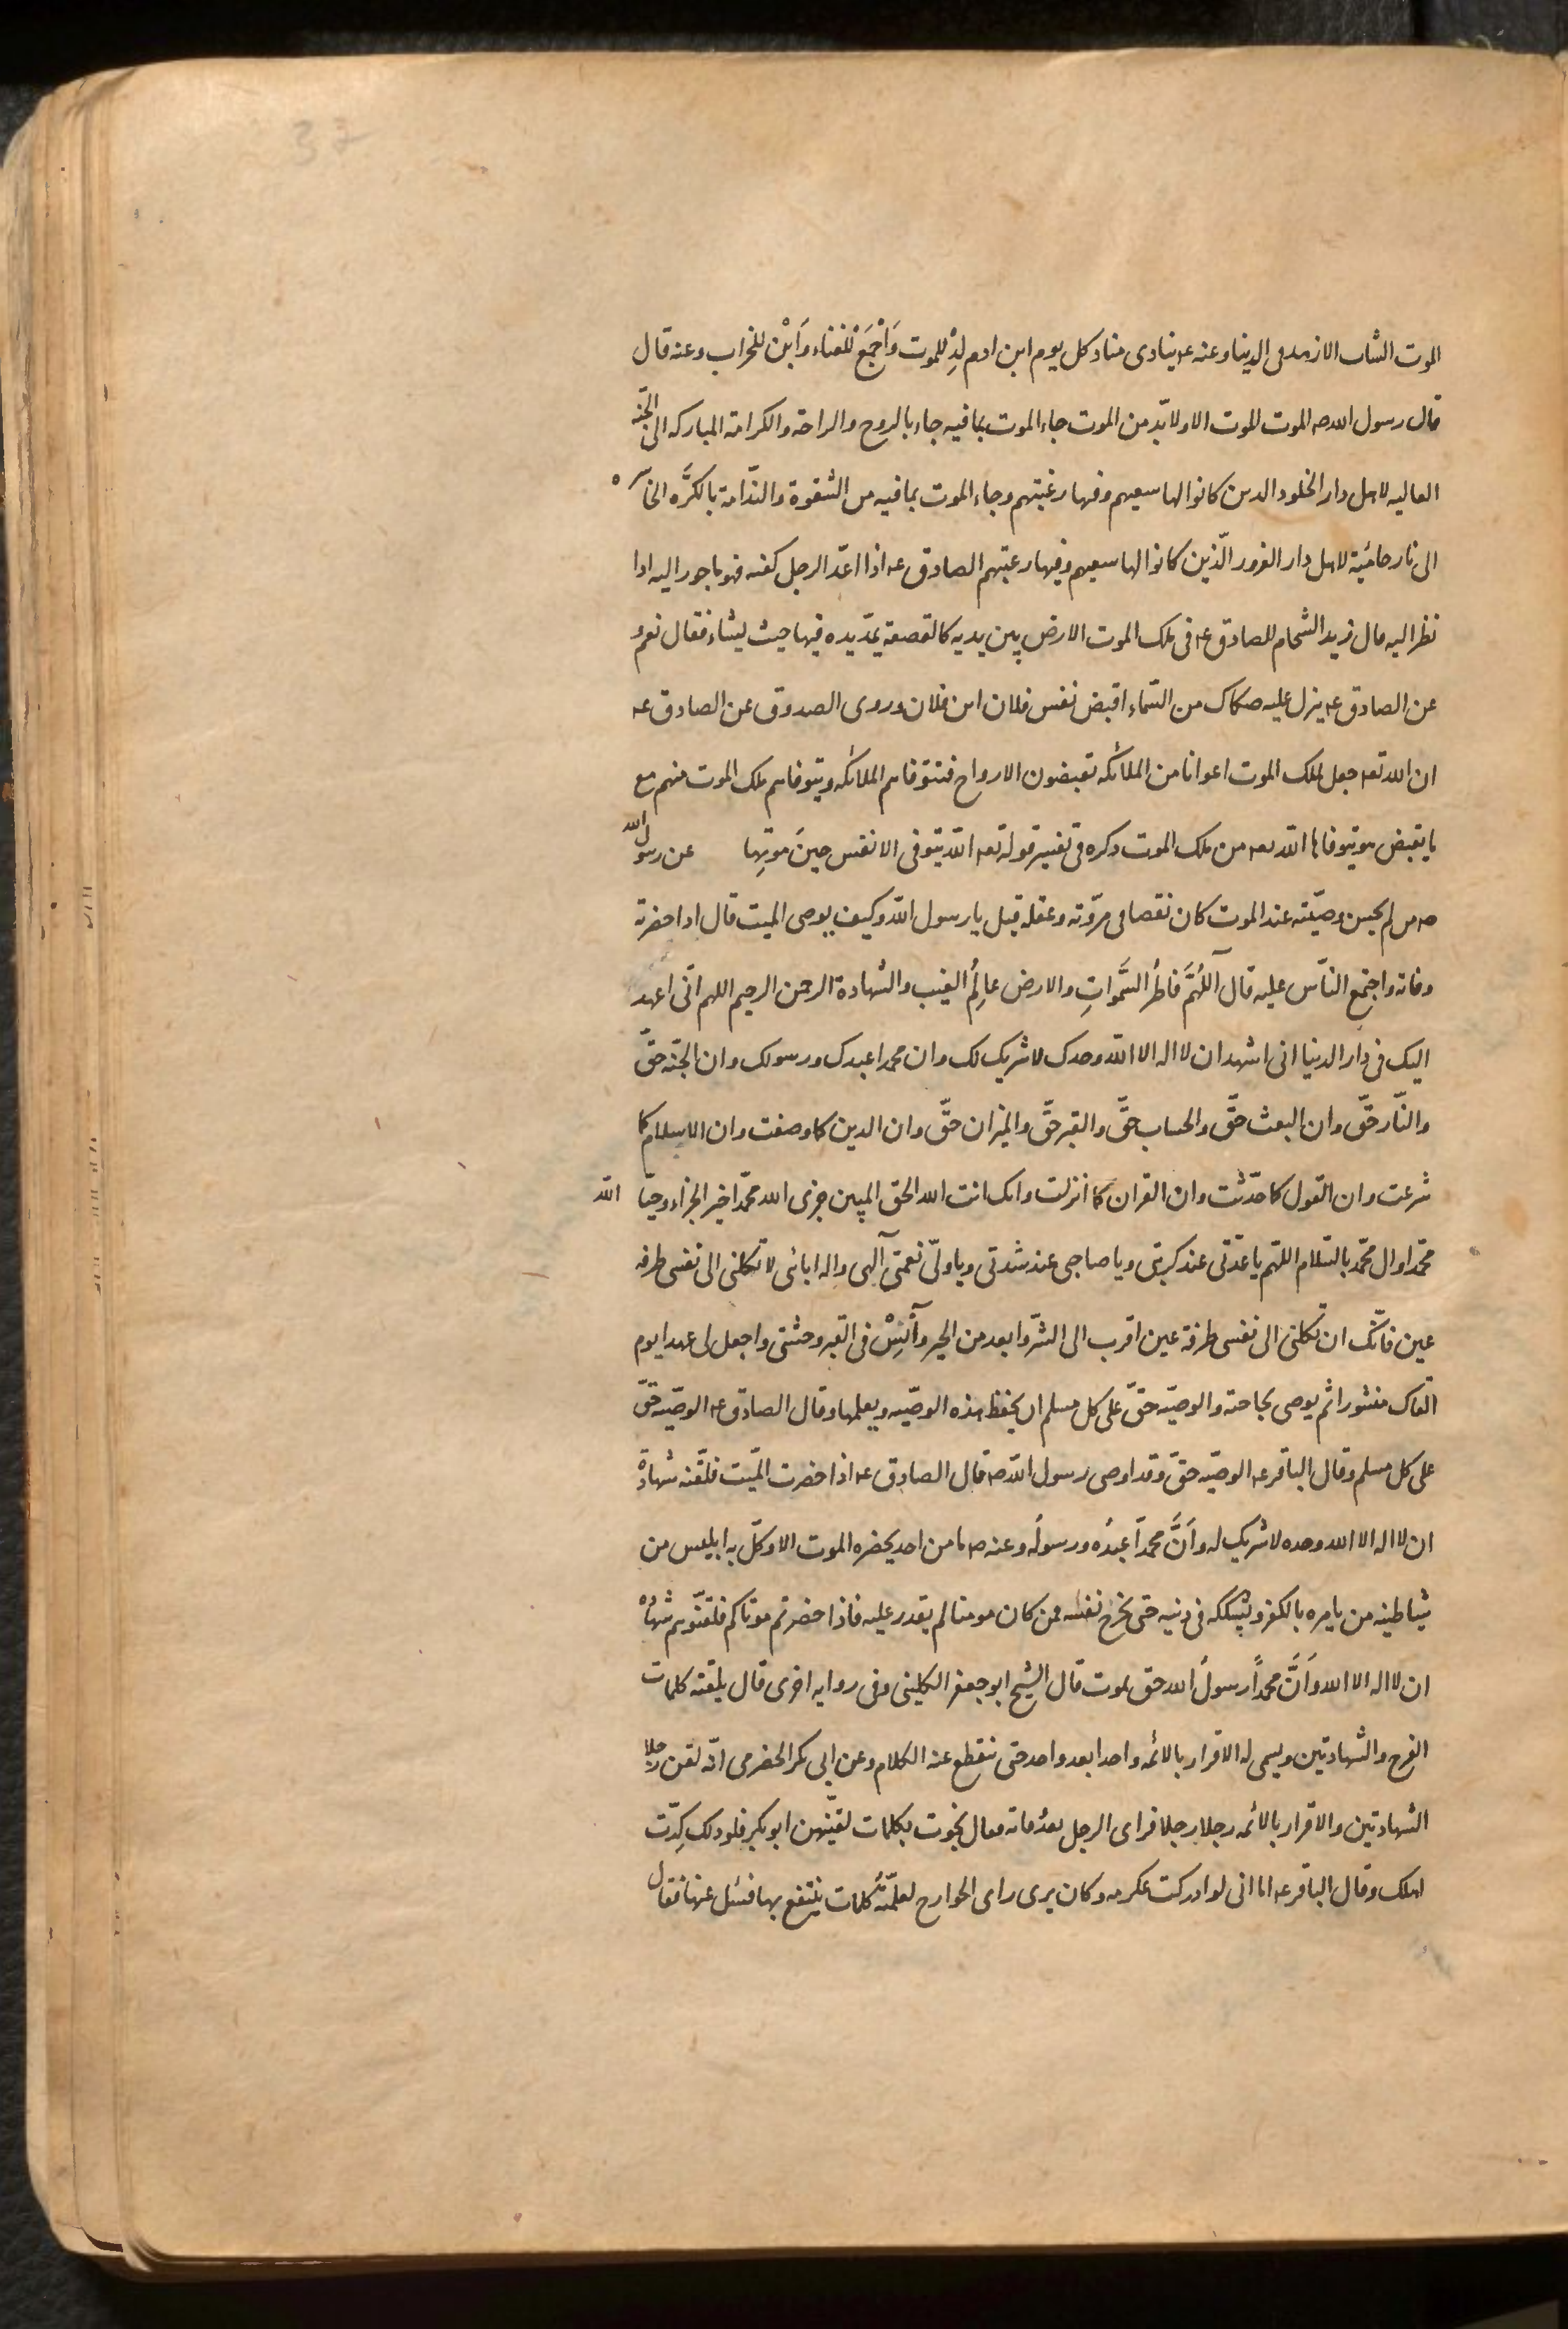 37
الموت الشاب الا زهد فى الدنيا وعنه عه ينادى مناد كل يوم ابن ادم لِدْ للموت وَاجْمَعْ للفناء وَابْن للخراب وعنه قال
قال رسول الله صه الموت الموت الا ولا بّد من الموت جاء الموت بما فيه جاء بالروح والراحة والكرامة المباركه الى الجنّه
العاليه لاهل دار الخلود الدىن كانوا لها سعيهم وفيها رغبتهم وجاء الموت بما فيه من الشقوة والنّدامة بالكَرَّه الخاسره
الى نار حامَية لاهل دار الغرور الّذين كانوا لها سعيهم وفيها رغبتهم الصادق عه اذا اعدّ الرجل كفنه فهو ماجور اليه اذا
نظر اليه قال زيد الشحام للصادق عه فى ملك الموت الارض بين يديه كالقصعة يمدّ يده فيها حيث يشاء فقال نعم و
عن الصادق عه ينزل عليه صكاك من السّماء اقبض نفس فلان ابن فلان وروى الصدوق عن الصادق عه
ان الله تعه جعل لملك الموت اعوانا من الملائكه تقبضون الارواح فتتوّفاهم الملائكه ويتوفاهم ملك الموت منهم مع
ما يقبض هو يتوفاها اللّه تعه من ملك الموت دكره فى تفسير قوله تعه اللّه يتوفى الانفس حينَ موتِها عن رسول الله
صه من لم يحسن وصيّته عند الموت كان نقصا فى مرّوته وعقله قيل يا رسول اللّه وكيف يوصى الميت قال اذا حضرته
وفاته واجتمع النّاس عليه قال اَللّهُمَّ فاطِرَ السَّموَاتِ والارض عالِمُ الغيب والشهادة الرحمن الرحيم اللهم انّى اعهد
اليك فى دار الدنيا انى اشهد ان لا اله الا اللّه وحدك لا شريك لك وان محمدا عبدك ورسولك وان الجنّه حقّ
والنّار حقّ وان البعث حقّ والحساب حقّ والقبر حقّ والميزان حقّ وان الدين كما وصفت وان الاسلام كما
شرعت وان القول كما حدّثت وان القران كما انزلت وانك انت الله الحق المبين جزى الله محمّدا خير الجزاء وحيّا الله
محّمدا وال محّمد بالسّلام اللّهم يا عدّتى عند كربتى ويا صاحبى عند شدتى ويا ولىّ نعمتى آلهى واله ابائى لا تكلنى الى نفسى طرفه
عين فانّك ان تكلنى الى نفسى طرفة عين اقرب الى الشّر وابعد من الخير وآنِسْ فى القبر وحشتى واجعل لى عهدا يوم
القاك منشورا ثم يوصى بحاجته والوصيّه حقّ على كل مسلم ان يحفظ هذه الوصّيه ويعلمها وقال الصادق عه الوصيّه حقّ
على كل مسلم وقال الباقر عه الوصيّه حقّ وقد اوصى رسول اللّه صه قال الصادق عه اذا حضرت الميّت فلقّنه شهادة
ان لا اله الا الله وحده لا شريك له وَاَنَّ محمداً عبدُه ورسولُه وعنه صه ما من احد يحضره الموت الا وكلّ به ابليس من
شياطينه من يامره بالكفر ويشككه فى دينه حتى يخرج نفسُه فمن كان مومنا لم يقدر عليه فاذا حضرتم موتاكم فلقنّوهم شهادة
ان لا اله الا الله وَاَنَّ محمداً رسولُ الله حتى يموت قال الشيخ ابو جعفر الكلينى وفى روايه اخرى قال يلقنه كلمات
الفرج والشهادتين ويسمى له الاقرار بالائمه واحدا بعد واحد حتى ينقطع عنه الكلام وعن ابى بكر الحضرمى انّه لقن رجلا
الشهادتين والاقرار بالائمه رجلا رجلا فراى الرجل بعد وفاته فقال نجوت بكلمات لقنّيهن ابو بكر فلولا ذلك كِدّت
اهلك وقال الباقر عه اما انى لو ادركت عكرمه وكان يرى راى الخوارج لعلّمته كلمات ينتفع بها فسُئل عنها فقال